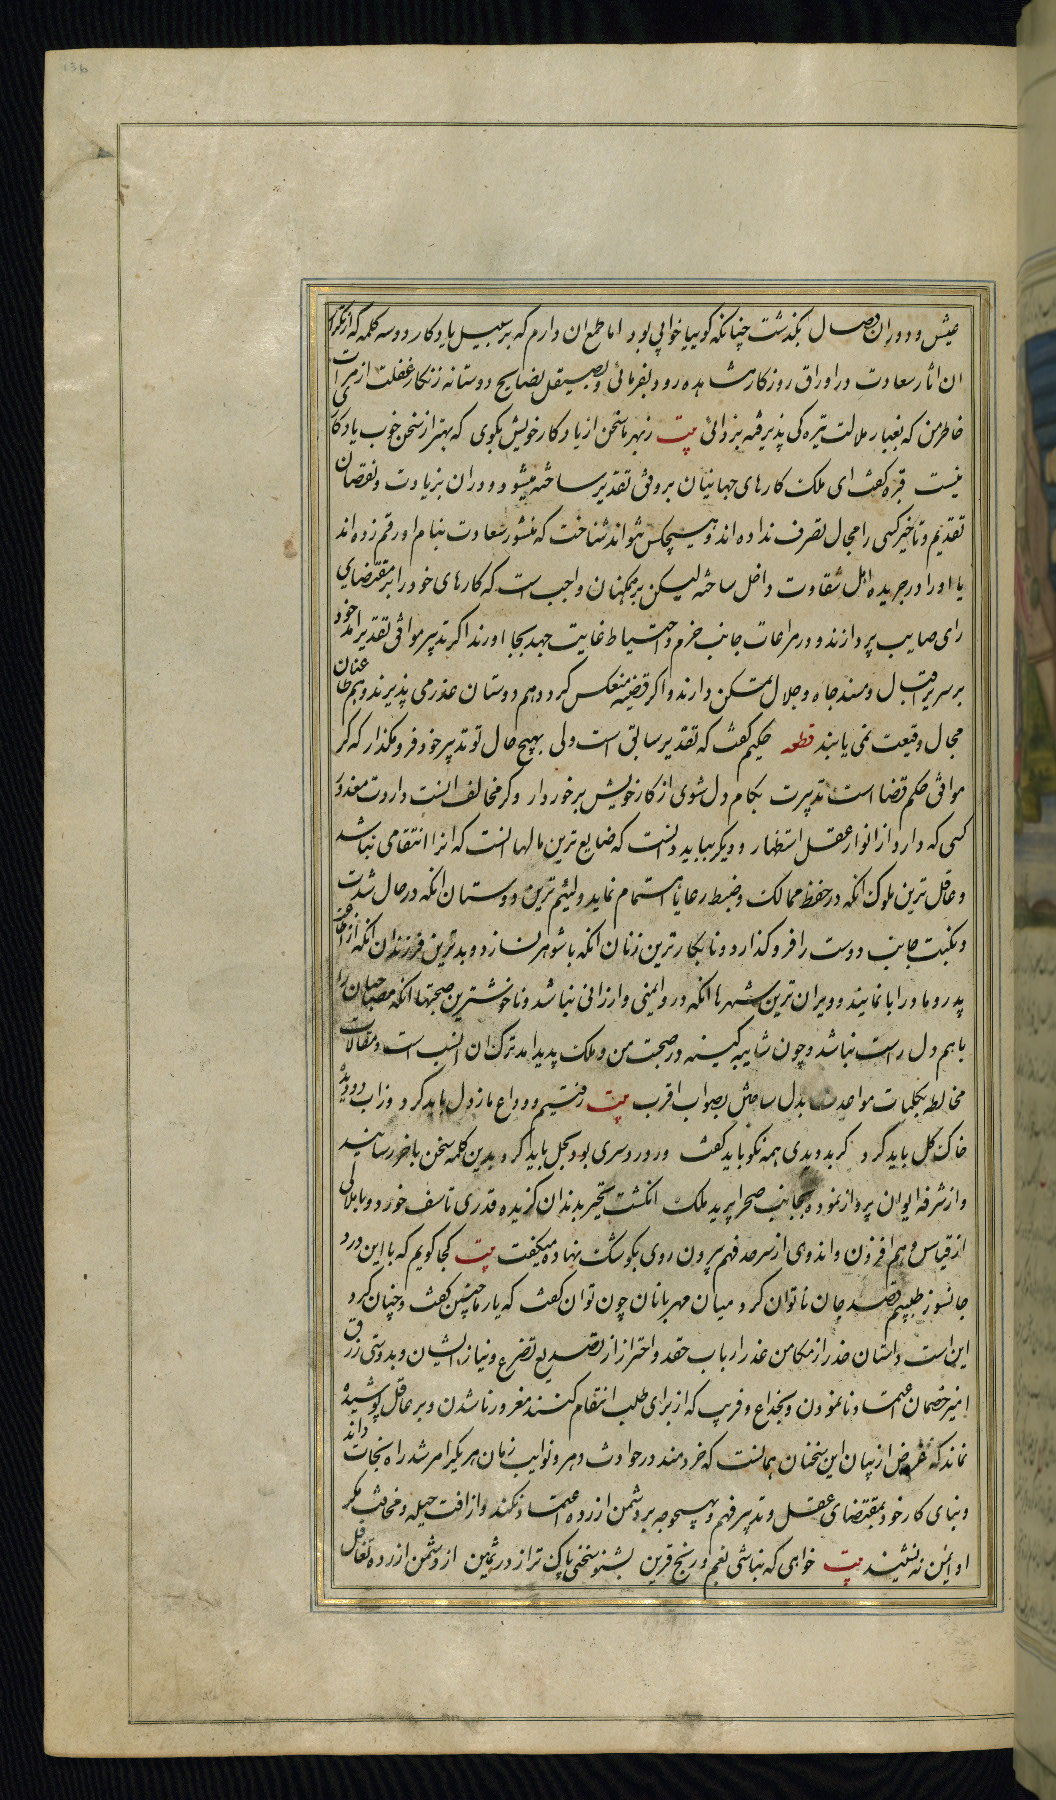 136
عیش و دوران وصال بگذشت چنانکه گوییا خوابی بود اما طمع ان دارم که بر سبیل یادکار دو سه کلمه که از تکرار
ان اثار سعادت در اوراق روزکار مشاهده رود بفرمائی و بصیقل نصایح دوستانه زنکار غفلت از مرات
خاطر من که بغبار ملالت تیره کی پذیرفته بزدائی بیت زبهر ما سخن از یادکار خویش بکوی که بهتر از سخن خوب یادکاری
نیست قبره کفت ای ملک کارهای جهانیان بر وفق تقدیر ساخته میشود و دران بزیادت و نقصان
تقدیم و تاخیر کسی را مجال تصرف نداده اند و هیچکس نتواند شناخت که منشور سعادت بنام او رقم زده اند
یا او را در جریده اهل شقاوت داخل ساخته لیکن بر همکنان واجب است که کارهای خود را بر مقتضای
رای صایب پردازند و در مراعات جانب حزم و احتیاط غایت جهد بجا اورند اکر تدبیر موافق تقدیر امد خود
بر سریر اقبال و مسند جاه و جلال متمکن دارند و اکر قضیه منعکس کردد هم دوستان عذر می پذیرند و هم طاعنان
مجال وقیعت نمی یابند قطعه حکیم کفت که تقدیر سابق است ولی بهیچ حال تو تدبیر خود فرو مکذار که کر
موافق حکم قضا است تدبیرت بکام دل شوی از کار خویش برخوردار و کر مخالف انست داردت معذور
کسی که دارد از انوار عقل استظهار و دیکر بباید دانست که ضایع ترین مالها انست که ازا انتقامی نباشد
و غافل ترین ملوک انکه در حفظ ممالک و ضبط رعایا اهتمام نماید و لئیم ترین دوستان انکه در حال شدت
و نکبت جانب دوست را فرو کذارد و نابکارترین زنان انکه با شوهر نسازد و بدترین فرزندان انکه از اطاعت
پدر و مادر ابا نمایند و ویران ترین شهرها انکه در و ایمنی و ارزانی نباشد و ناخوشترین صحبتها انکه مصاحبان را
با هم دل راست نباشد و چون شایبه کینه در صحبت من و ملک پدید امد ترک ان انسب است و مقالات
مخالطه بکلمات مواحدت بدل ساختن بصواب اقرب بیت رفتیم و وداع ما ز دل باید کرد وز اب دو دیده
خاک کل باید کرد کر بد دیدی همه نکو باید کفت ور دردسری بود بحل باید کرد بدین کلمه سخن باخر رسانید
و از شرفه ایوان پرواز نموده بجانب صحرا پرید ملک انکشت تحیر بدندان کزیده قدری تاسف خورد و با ملالی
از قیاس وهم افزون و اندوهی از سرحد فهم بیرون روی بکوشک نهاده میکفت بیت کجا کویم که با این درد
جانسوز طبیبم قصد جان ناتوان کرد میان مهربانان چون توان کفت که یار ما چنین کفت و چنان کرد
این است داستان حذر از مکامن غدر ارباب حقد و احتراز از تصدیع تضرع و نیاز ایشان و بدوستی زرق
امیز خصمان اعتماد نانمودن و بخداع و فریب که از برای طلب انتقام کنند مغرور ناشدن و بر عاقل پوشیده
نماند که غرض از بیان این سخنان همانست که خردمند در حوادث دهر و نوایب زمان هر یکرا مرشد راه نجات داند
و بنای کار خود بمقتضای عقل و تدبیر فهم و بهیچوجه بر دشمن ازرده اعتماد نکند و از افت حیله و مخافت مکر
او ایمن ننشیند بیت خواهی که نباشی بغم و رنج قرین بشنو سخنی پاک تر از در ثمین از دشمن ازرده تغافل